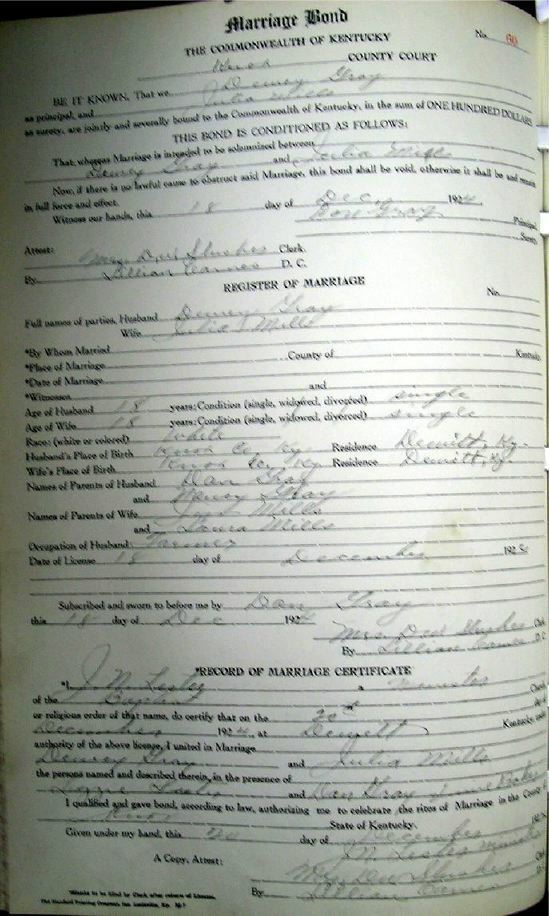 Marriage Bond
No. 60
THE COMMONWEALTH OF KENTUCKY
Knox COUNTY COURT
BE IT KNOWN, That we Dewey Gray
as principal, and Julia Mills
as surety, are jointly and severally bound to the Commonwealth of Kentucky, in the sum of ONE HUNDRED DOLLARS
THIS BOND IS CONDITIONED AS FOLLOWS:
That whereas Marriage is intended to be solemnized between
Dewey Gray and Julia Mills
Now, if there is no lawful cause to obstruct said Marriage, this bond shall be void, otherwise it shall be and remain
in full force and effect.
Witness our hands, this 18 day of Dec. 1924
Dan Gray Principal
Surety
Attest:
Mrs. Dew Slusher Clerk.
By Lillian D. C.
REGISTER OF MARRIAGE
No.
Full names of parties, Husband Dewey Gray
Wife Julia Mills
*By Whom Married
*Place of Marriage County of Kentucky
*Date of Marriage
*Witnesses and
Age of Husband 18 years: Condition (single, widowed, divorced) single
Age of Wife 18 years: Condition (single, widowed, divorced) single
Race: (white or colored) White
Husband's Place of Birth Knox Co Ky. Residence Dewitt, Ky.
Wife's Place of Birth Knox Co, Ky Residence Dewitt, Ky.
Names of Parents of Husband Dan Gray
and Nancy Gray
Names of Parents of Wife Mills
and Laura Mills
Occupation of Husband: Farmer
Date of License 18 day of December 192
Subscribed and sworn to before me by Dan Gray
this 18 day of Dec 1924
Mrs. Dew Slusher Clerk
By Lillian D. C.
*RECORD OF MARRIAGE CERTIFICATE
*I, J. M. Lester a Minister
of the Baptist
or religious order of that name, do certify that on the 20
December 1924, at Kentucky, under
authority of the above license, I united in Marriage
Dewey Gray and Julia Mills
the persons named and described therein, in the presence of
Lester and Dan Gray
I qualified and gave bond, according to law, authorizing me to celebrate the rites of Marriage in the County of
Knox State of Kentucky.
Given under my hand, this 20 day of December
J. M. Lester Minister
A Copy, Attest: Mrs Dew Slusher
By Lillian